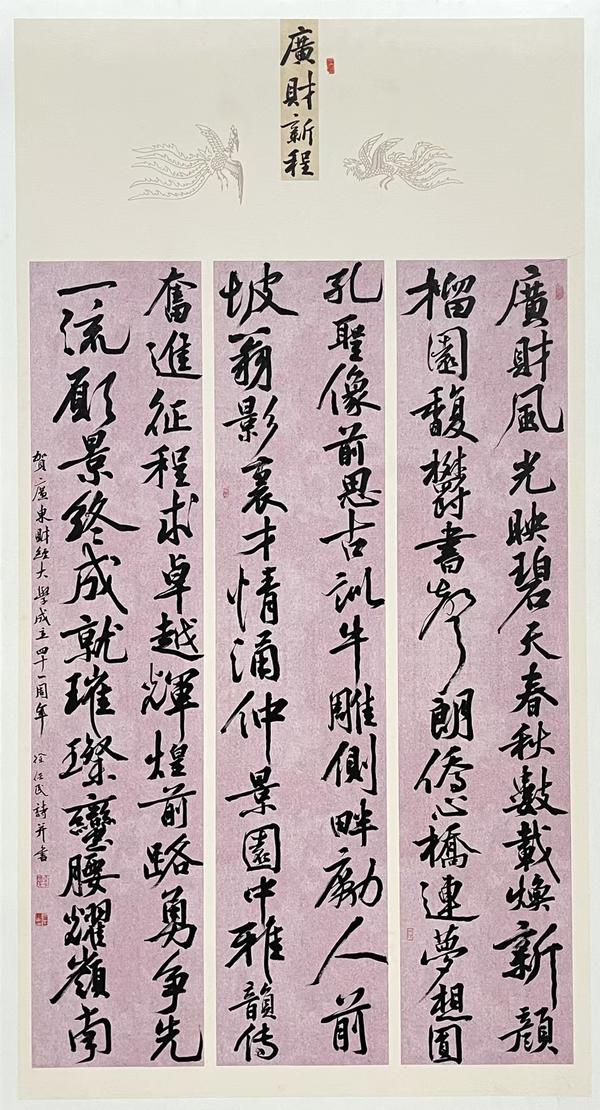 廣財新程
廣財風光映碧天春秋數載煥新顏
榴園馥欝書聲朗僑心橋連夢想圓
孔聖像前思古訓牛雕側畔勵人前
坡翁影裏才情涌仲景園中雅韻传
奮進征程求卓越輝煌前路勇争先
一流願景終成就璀璨蠻腰耀嶺南
賀廣東財經大學成立四十一周年 徐民詩并書